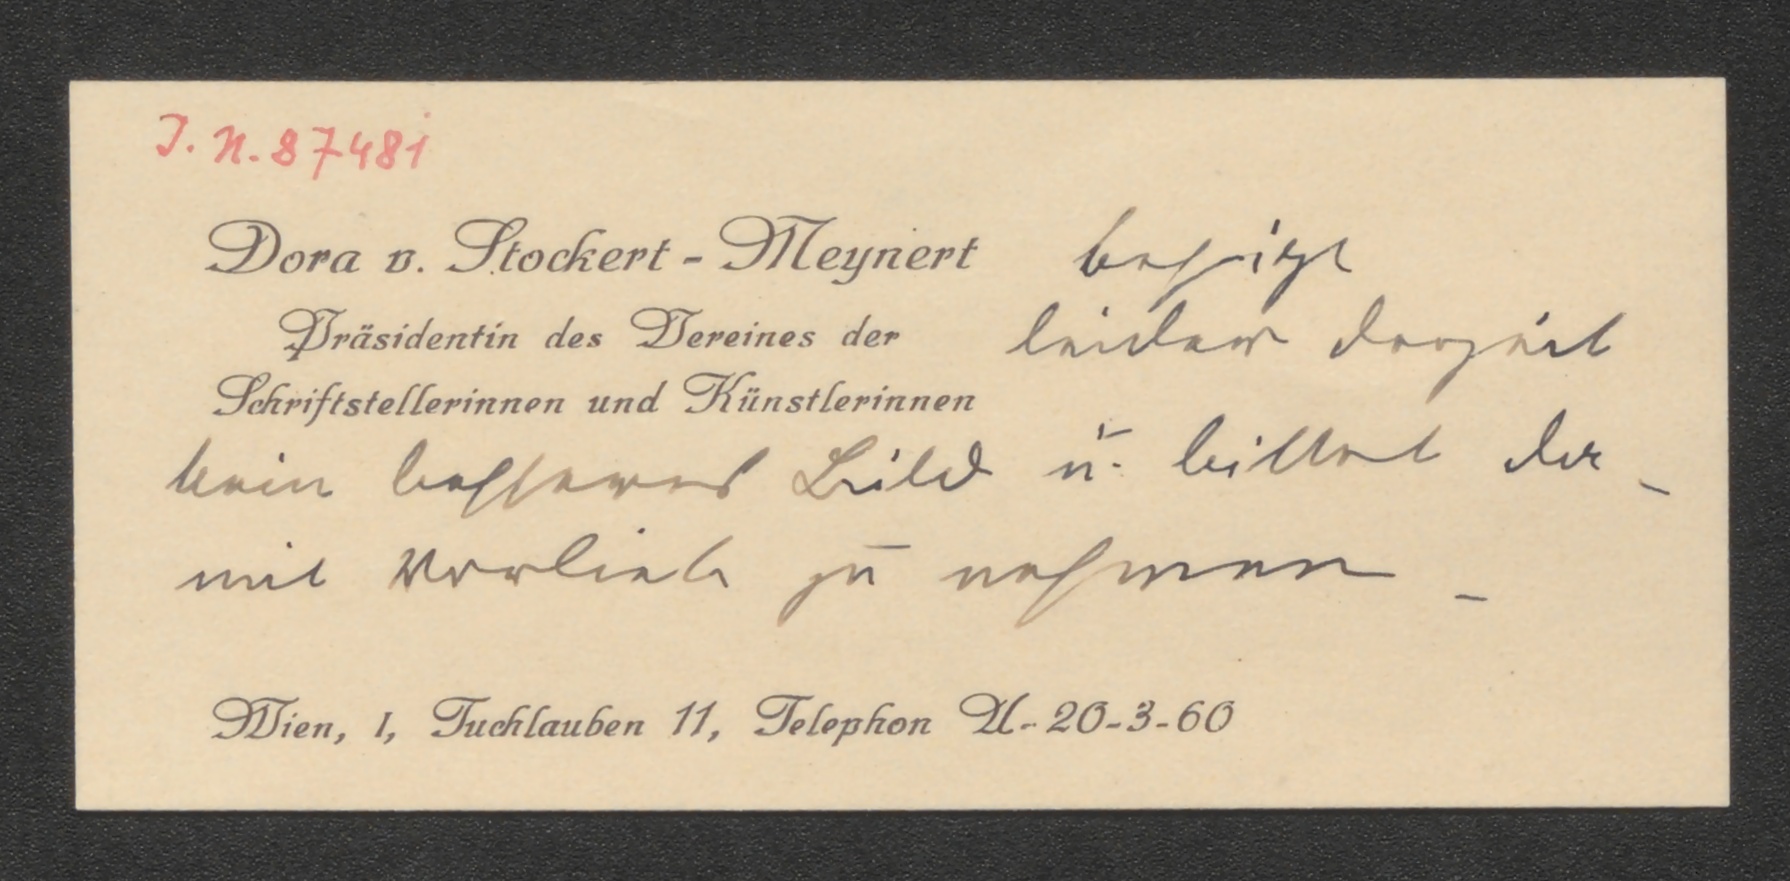 J. N. 87481
Dora v. Stockert - Meynert besitzt
Präsidentin des Vereines der leider derzeit
Schriftstellerinnen und Künstlerinnen
kein besseres Bild u. bittet da-
mit Vorlieb zu nehmen -
Wien, I, Tuchlauben 11, Telephon U-20-3-60